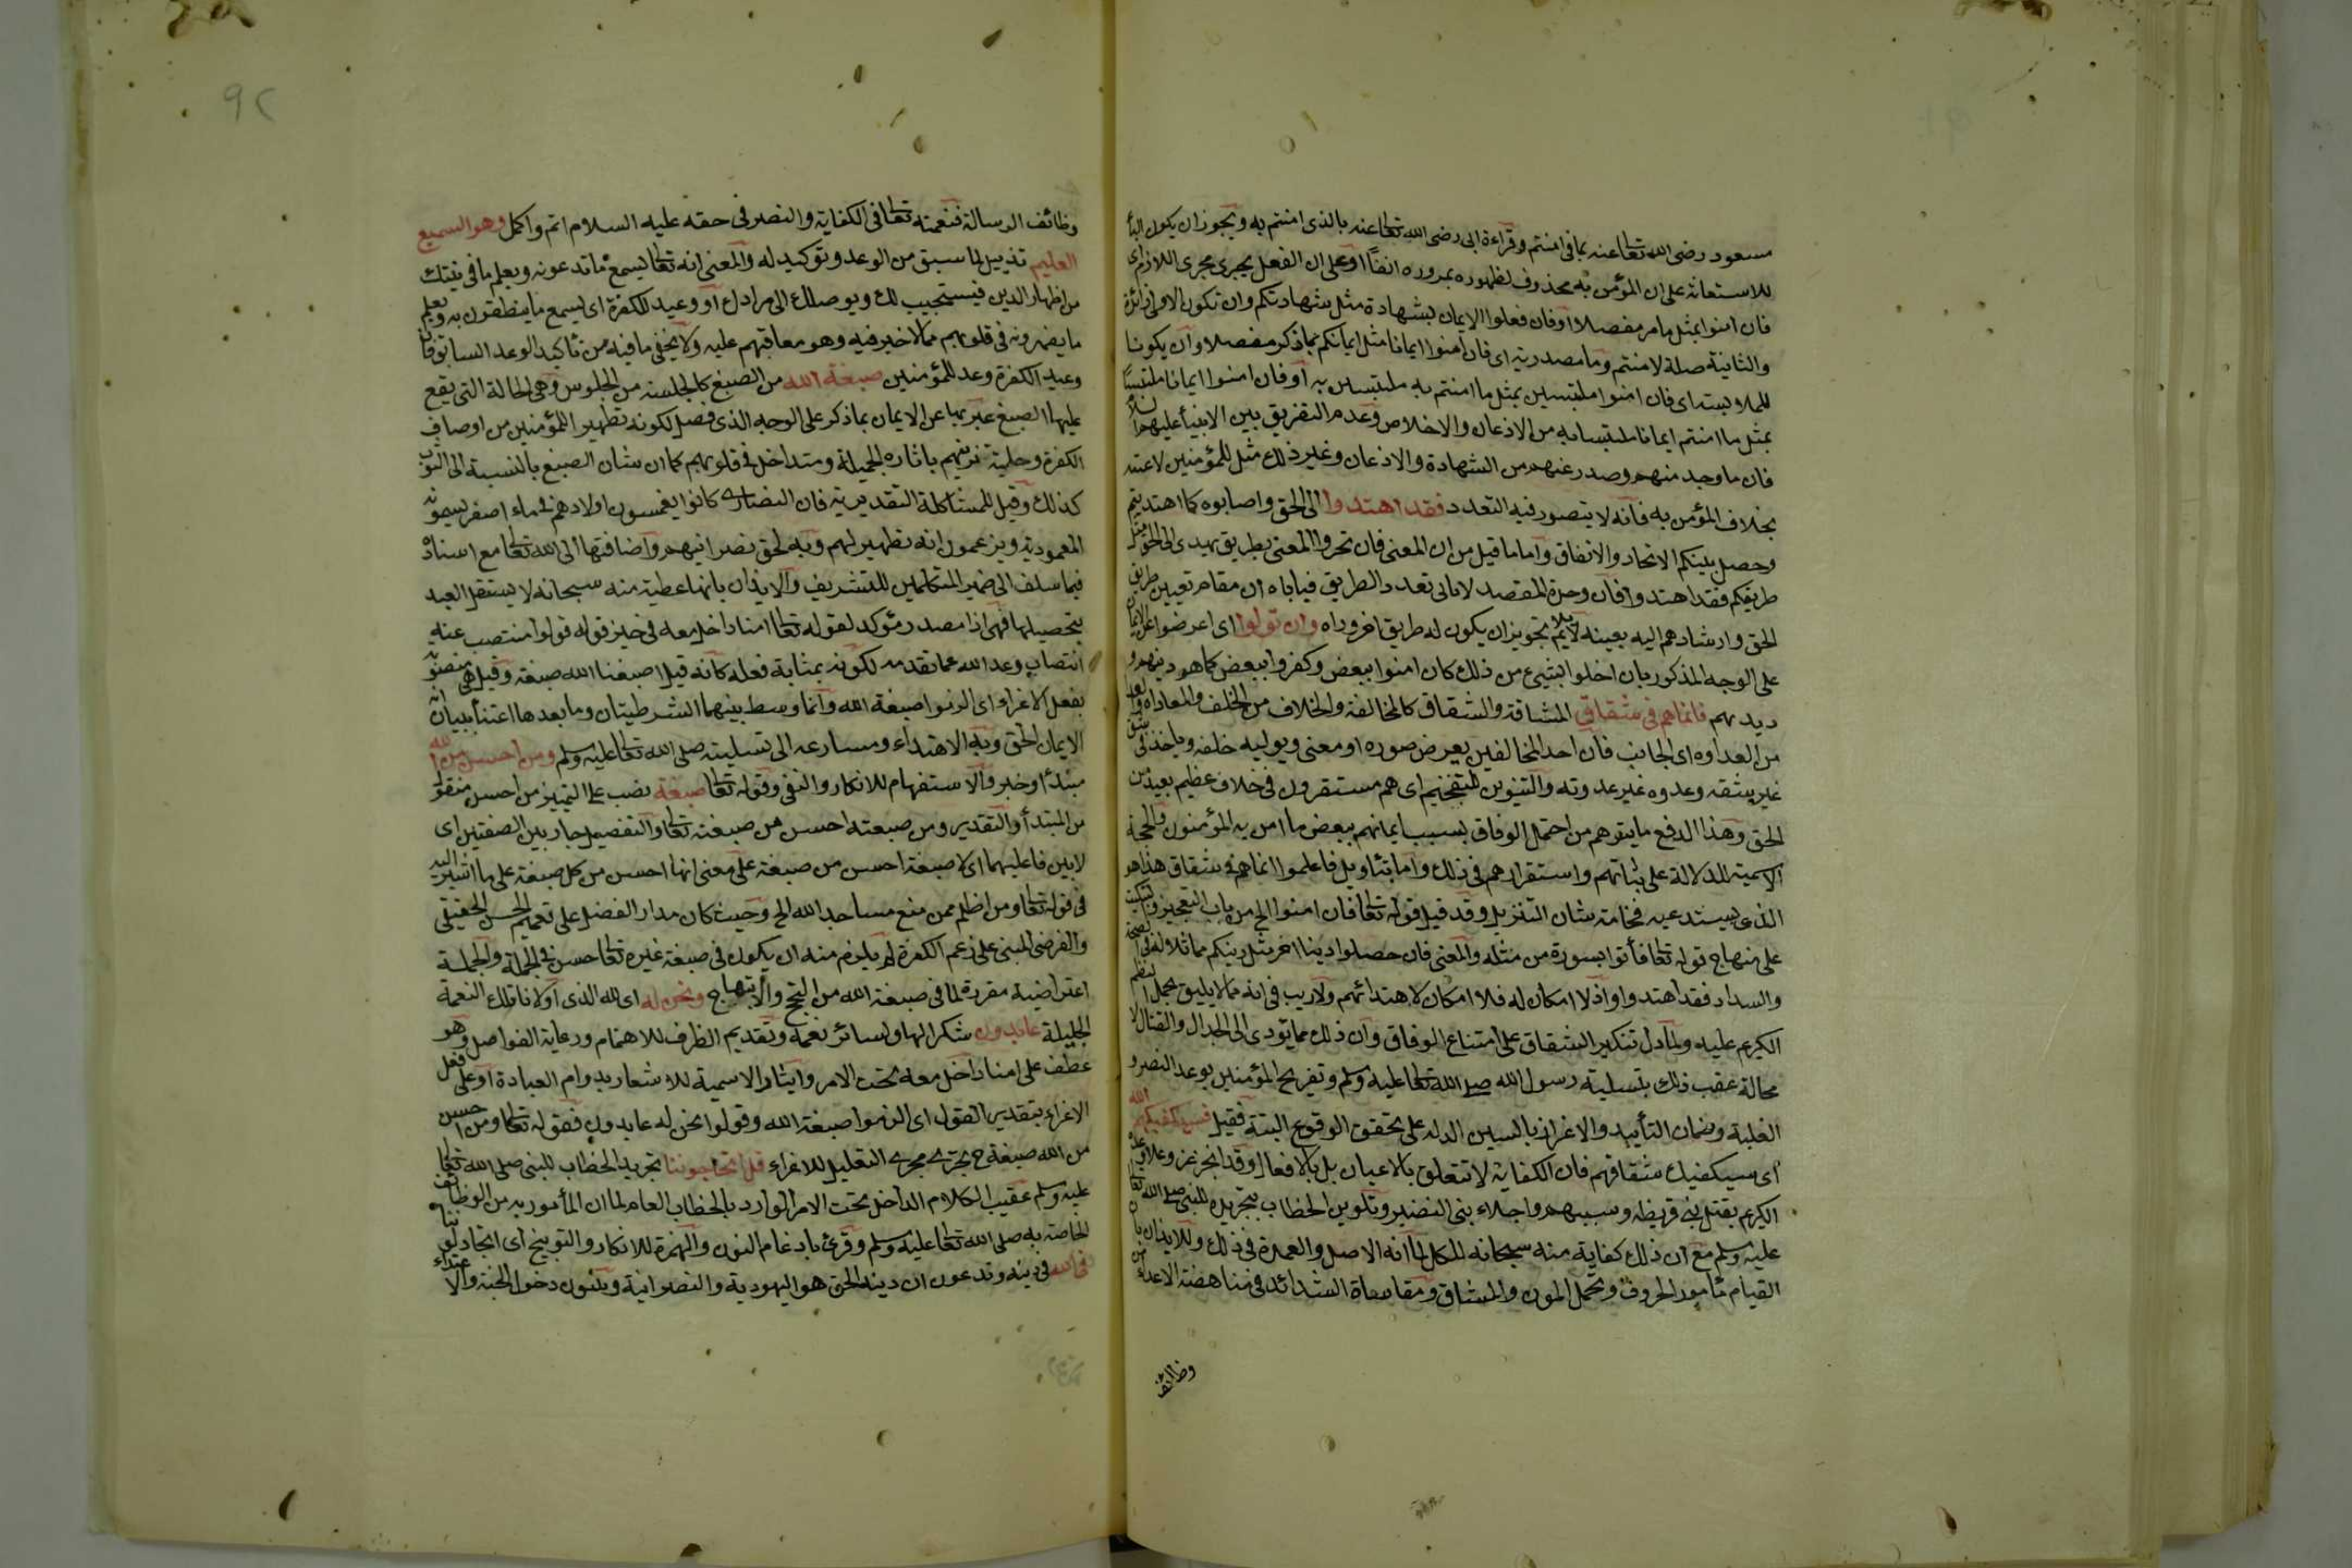 مسعود رضى الله تعالى عنه بما فى امنتم وقراءة ابى رضى الله تعالى عنه بالذى امنتم به ويجوز ان يكون الباء
للاستعانة على ان المؤمن به محذوف لظهوره بمروره انفا او على ان الفعل يجرى مجرى اللازم اى
فان امنوا بمثل ما مر مفصلا او فان فعلوا الايمان بشهادة مثل شهادتكم وان تكون الاولى زائدة
والثانية صلة لامنتم وما مصدرية اى فان امنوا ايمانا مثل ايمانكم بما ذكر مفصلا وان يكونا
للملابسة اى فان امنوا ملتبسين بمثل ما امنتم به ملتبسين به او فان امنوا ايمانا ملتبسا
بمثل ما امنتم ايمانا ملتبسا به من الاذعان والاخلاص وعدم التفريق بين الانبياء عليهم السلام
فان ما وجد منهم وصدر عنهم من الشهادة والاذعان وغير ذلك مثل للمؤمنين لا عينه
بخلاف المؤمن به فانه لا يتصور فيه التعدد فقد اهتدوا الى الحق واصابوه كما اهتديتم
وحصل بينكم الاتحاد والاتفاق واما ما قيل من ان المعنى فان تحروا المعنى بطريق يهدى الى الحق مثل
طريقكم فقد اهتدوا فان وحدة المقصد لا تابى تعدد الطريق فياباه ان مقام تعيين طريق
الحق وارشادهم اليه بعينه لا يلايم تجويز ان يكون له طريق اخر وراه وان تولوا اى اعرضوا عن الايمان
على الوجه المذكور بان اخلوا بشيئ من ذلك كان امنوا ببعض وكفروا ببعض كما هو دينهم و
ديدنهم فانما هم فى شقاق المشاقة والشقاق كالمخالفة والخلاف من الخلف والمعاداة والعداء
من العداوه اى الجانب فان احد المخالفين يعرض صوره او معنى ويوليه خلفه وياخذ فى شق
غير شقه وعدوه غير عدوته والتنوين للتفخيم اى هم مستقرون فى خلاف عظيم بعيد من
الحق وهذا الدفع ما يتوهم من احتمال الوفاق بسبب ايمانهم ببعض ما امن به المؤمنون والجملة
الاسمية للدلالة على ثباتهم واستقرارهم فى ذلك واما بتاويل فاعلموا انما هم فى شقاق هذا هو
الذى يستدعيه فخامة شان التنزيل وقد قيل قوله تعالى فان امنوا الخ من باب التعجيز والتبكيت
على منهاج قوله تعالى فأتوا بسورة من مثله والمعنى فان حصلوا دينا اخر مثل دينكم مماثلا له فى الصحة
والسداد فقد اهتدوا واذ لا امكان له فلا امكان لاهتدائهم ولا ريب فى انه مما لا يليق بحمل النظم
الكريم عليه ولما دل تنكير الشقاق على امتناع الوفاق وان ذلك مما يؤدى الى الجدال والقتال لا
محالة عقب ذلك بتسلية رسول الله صلى الله تعالى عليه وسلم وتفريح المؤمنين بوعد النصر و
الغلبة وضمان التأييد والاعزاز بالسين الدالة على تحقق الوقوع البتة فقيل فسيكفيكهم الله
اى سيكفيك شقاقهم فان الكفاية لا تتعلق بالاعيان بل بالافعال وقد انجز عز وعلا وعده
الكريم بقتل بنى قريظه وسبيهم واجلاء بنى النضير وتلوين الخطاب بتجريده للنبى صلى الله تعالى
عليه وسلم مع ان ذلك كفاية منه سبحانه للكل لما انه الاصل والعمدة فى ذلك وللايذان بان
القيام بأمور الحروب وتحمل المون والمشاق ومقاساة الشدائد فى مناهضة الاعداء من
وظائف
وظائف الرسالة فنعمته تعالى فى الكفاية والنصر فى حقه عليه السلام اتم واكمل وهو السميع
العليم تذييل لما سبق من الوعد وتوكيد له والمعنى انه تعالى يسمع ما تدعو به ويعلم ما فى نيتك
من اظهار الدين فيستجيب لك ويوصلك الى مرادك او وعيد للكفرة اى يسمع ما ينطقون به ويعلم
ما يضمرونه فى قلوبهم مما لا خير فيه وهو معاقبهم عليه ولا يخفى ما فيه من تأكيد الوعد السابق فان
وعيد الكفرة وعد للمؤمنين صبغة الله من الصبغ كالجلسة من الجلوس وهى الحالة التى يقع
عليها الصبغ عبر بها عن الايمان بما ذكر على الوجه الذى فصل لكونه تطهيرا للمؤمنين من اوضار
الكفرة وحلية تزينهم باثاره الجميلة ومتداخل فى قلوبهم كما ان شان الصبغ بالنسبة الى الثوب
كذلك وقيل للمشاكلة التقديرية فان النصارى كانوا يغمسون اولادهم فى ماء اصفر يسمونه
المعمودية ويزعمون انه تطهير لهم وبه لحق نصرانيتهم واضافتها الى الله تعالى مع اسناده
فيما سلف الى ضمير المتكلمين للتشريف والايذان بانها عطية منه سبحانه لا يستقل العبد
بتحصيلها فهى اذا مصدر مؤكد لقوله تعالى امنا داخل معه فى حيز قوله قولوا منتصب عنه
انتصاب وعد الله عما تقدمه لكونه بمثابة فعله كأنه قيل صبغنا الله صبغة وقيل هى منصوبة
بفعل الاغراء اى الزموا صبغة الله وانما وسط بينهما الشرطيتان وما بعدها اعتناء ببيان انه
الايمان الحق وبه الاهتداء ومسارعه الى تسليته صلى الله تعالى عليه وسلم ومن احسن من الله
مبتدأ وخبر والاستفهام للانكار والنفى وقوله تعالى صبغة نصب على التمييز من احسن منقول
من المبتدأ والتقدير ومن صبغته احسن من صبغته تعالى والتفضيل جار بين الصبغتين اى
لا بين فاعليهما اى لا صبغة احسن من صبغة على معنى انها احسن من كل صبغة على ما اشير اليه
فى قوله تعالى ومن اظلم ممن منع مساجد الله الخ وحيث كان مدار الفضل على تعميم الحسن الحقيقى
والفرضى المبنى على زعم الكفرة لم يلزم منه ان يكون فى صبغة غيره تعالى حسن فى الجملة والجملة
اعتراضية مقررة لما فى صبغة الله من التبجح والابتهاج ونحن له اى لله الذى اولانا تلك النعمة
الجليلة عابدون شكرا لها ولسائر نعمه وتقديم الظرف للاهتمام ورعاية الفواصل وهو
عطف على امنا داخل معه تحت الامر وايثار الاسمية للاشعار بدوام العبادة او على فعل
الاغراء بتقدير القول اى الزموا صبغة الله وقولوا نحن له عابدون فقوله تعالى ومن احسن
من الله صبغة ح يجرى مجرى التعليل للاغراء قل اتحاجوننا تجريد الخطاب للنبى صلى الله تعالى
عليه وسلم عقيب الكلام الداخل تحت الامر الوارد بالخطاب العام لما ان المأمور به من الوظائف
الخاصة به صلى الله تعالى عليه وسلم وقرئ بادغام النون والهمزة للانكار والتوبيخ اى اتجادلوننا
فى الله فى دينه وتدعون ان دينه الحق هو اليهودية والنصرانية وتبنون دخول الجنة والاهتداء